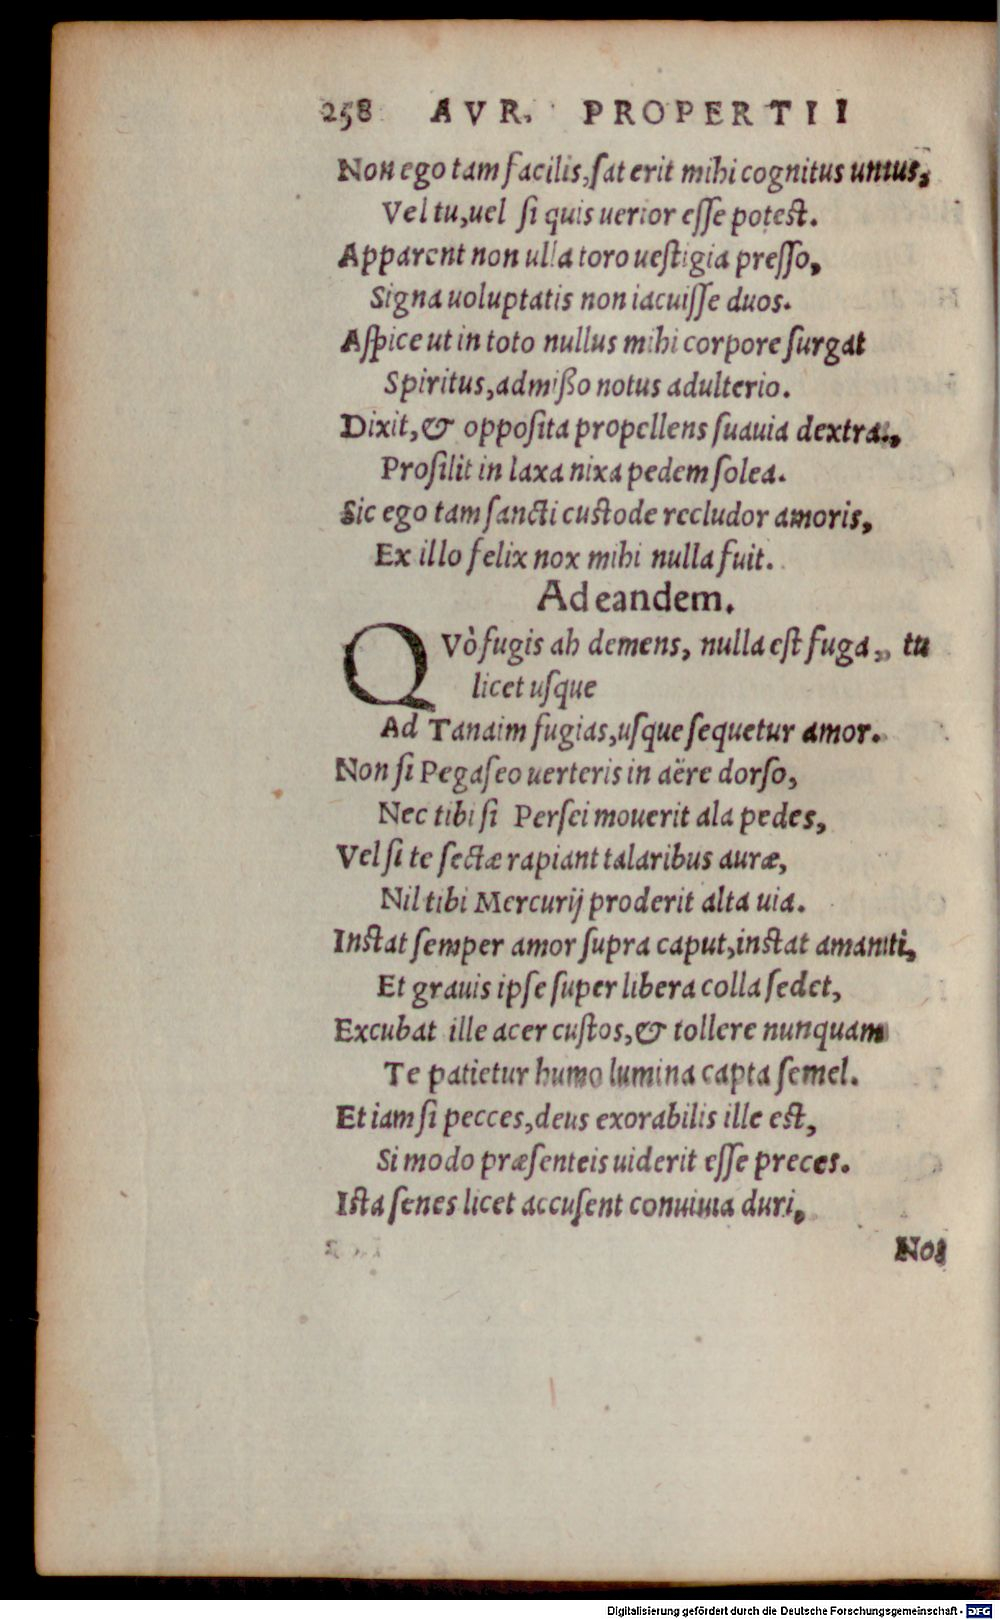 258 AVR. PROPERTII
Non ego tam facilis, ſat erit mihi cognitus unus,
Vel tu, uel ſi quis uerior eſſe poteſt.
Apparent non ulla toro ueſtigia preſſo,
Signa uoluptatis non iacuiſſe duos.
Aſpice ut in toto nullus mihi corpore ſurgat
Spiritus, admiſſo notus adulterio.
Dixit, & oppoſita propellens ſuauia dextra,
Proſilit in laxa nixa pedem ſolea.
Sic ego tam ſancti cuſtode recludor amoris,
Ex illo felix nox mihi nulla fuit.
Ad eandem.
QVò fugis ah demens, nulla eſt fuga, tu
licet uſque
Ad Tanaim fugias, uſque ſequetur amor.
Non ſi Pegaſeo uerteris in aëre dorſo,
Nec tibi ſi Perſei mouerit ala pedes,
Vel ſi te ſectæ rapiant talaribus auræ,
Nil tibi Mercurij proderit alta uia.
Inſtat ſemper amor ſupra caput, inſtat amanti,
Et grauis ipſe ſuper libera colla ſedet,
Excubat ille acer cuſtos, & tollere nunquam
Te patietur humo lumina capta ſemel.
Et iam ſi pecces, deus exorabilis ille eſt,
Si modo præſenteis uiderit eſſe preces.
Iſta ſenes licet accuſent conuiuia duri,
Nos
Digitalisierung gefördert durch die Deutsche Forschungsgemeinschaft - DFG